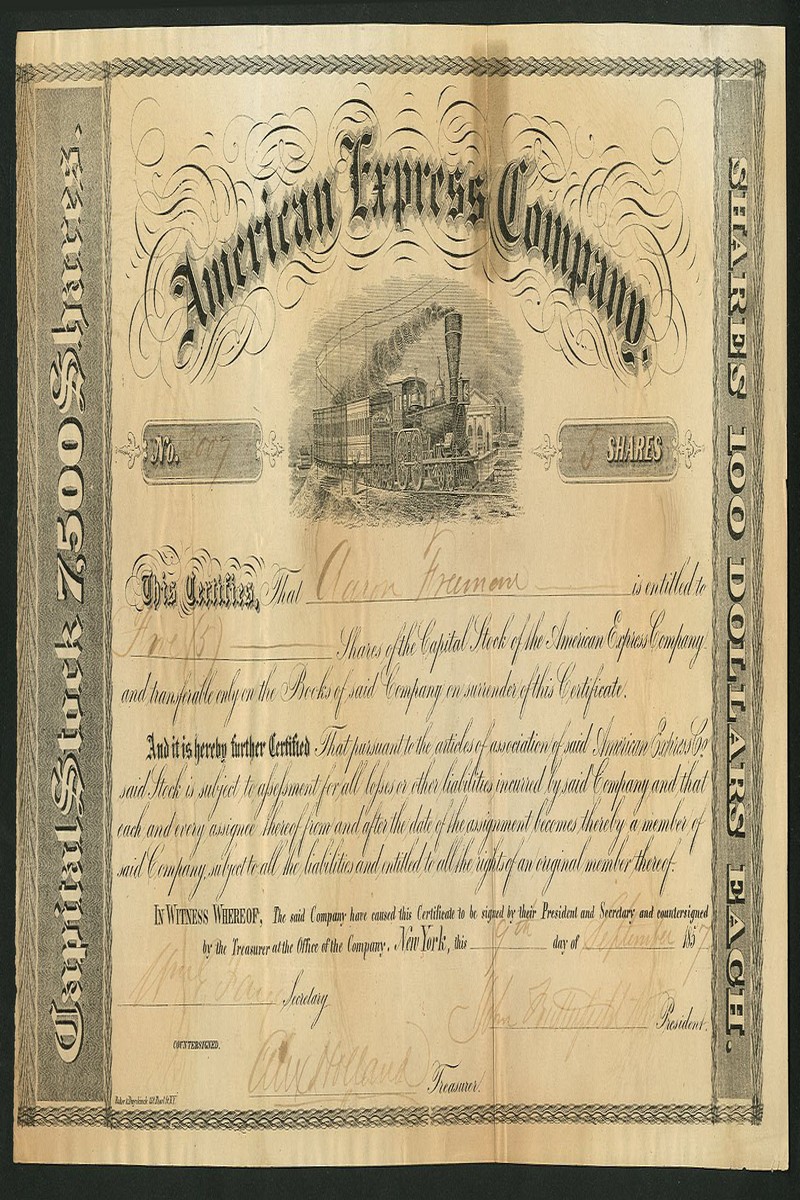 American Express Company.
Capital Stock 7,500 Shares.
SHARES 100 DOLLARS EACH.
No.
5 SHARES
This Certifies, That Aaron Freeman is entitled to
Five (5) Shares of the Capital Stock of the American Express Company
and transferable only on the Books of said Company on surrender of this Certificate.
And it is hereby further Certified That pursuant to the articles of association of said American Express Co
said Stock is subject to assessment for all losses or other liabilities incurred by said Company and that
each and every assignee thereof from and after the date of the assignment becomes thereby a member of
said Company, subject to all the liabilities and entitled to all the rights of an original member thereof.
IN WITNESS WHEREOF, The said Company have caused this Certificate to be signed by their President and Secretary and countersigned
by the Treasurer at the Office of the Company. New York, this 9th day of September 1857
Secretary
John Butterfield President.
COUNTERSIGNED.
Alex Holland Treasurer.